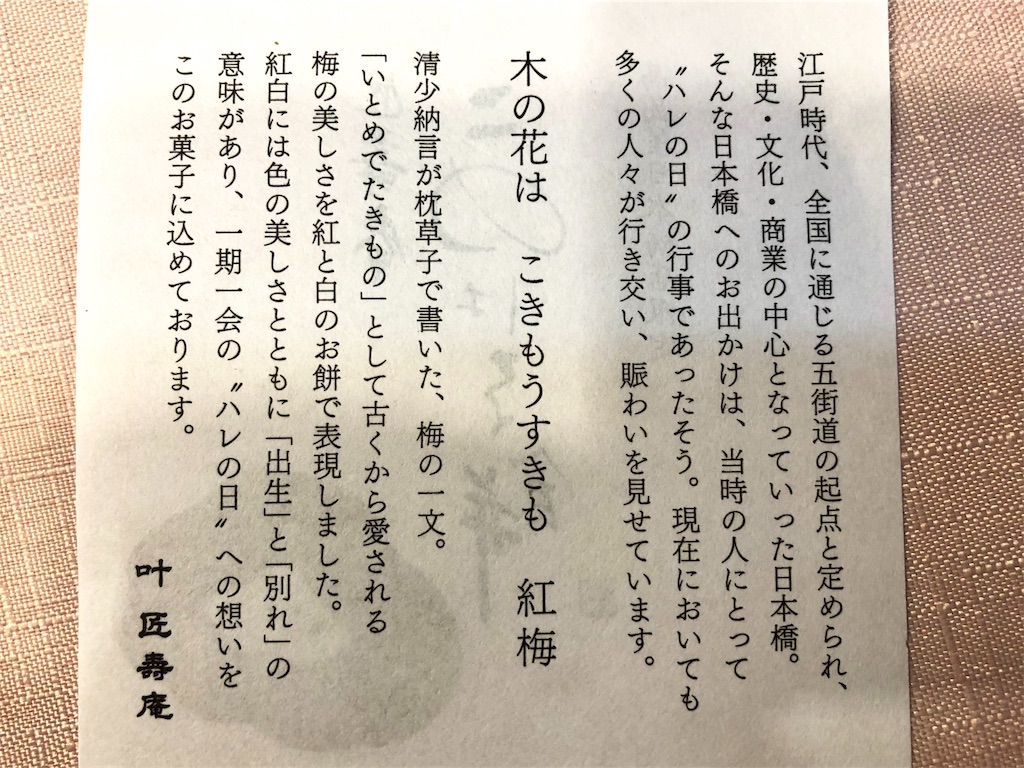 江戸時代、全国に通じる五街道の起点と定められ、
歴史・文化・商業の中心となっていった日本橋。
そんな日本橋へのお出かけは、当時の人にとって
〝ハレの日〟の行事であったそう。現在においても
多くの人々が行き交い、賑わいを見せています。
木の花は　こきもうすきも　紅梅
清少納言が枕草子で書いた、梅の一文。
「いとめでたきもの」として古くから愛される
梅の美しさを紅と白のお餅で表現しました。
紅白には色の美しさとともに「出生」と「別れ」の
意味があり、一期一会の〝ハレの日〟への想いを
このお菓子に込めております。
叶 匠壽庵